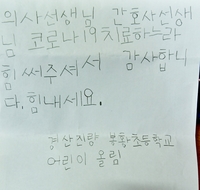 의사선생님 간호사선생
님 코로나19치료하느라
힘 써주셔서 감사합니
다. 힘내세요.
경산진량 봉황초등학교
어린이 올림